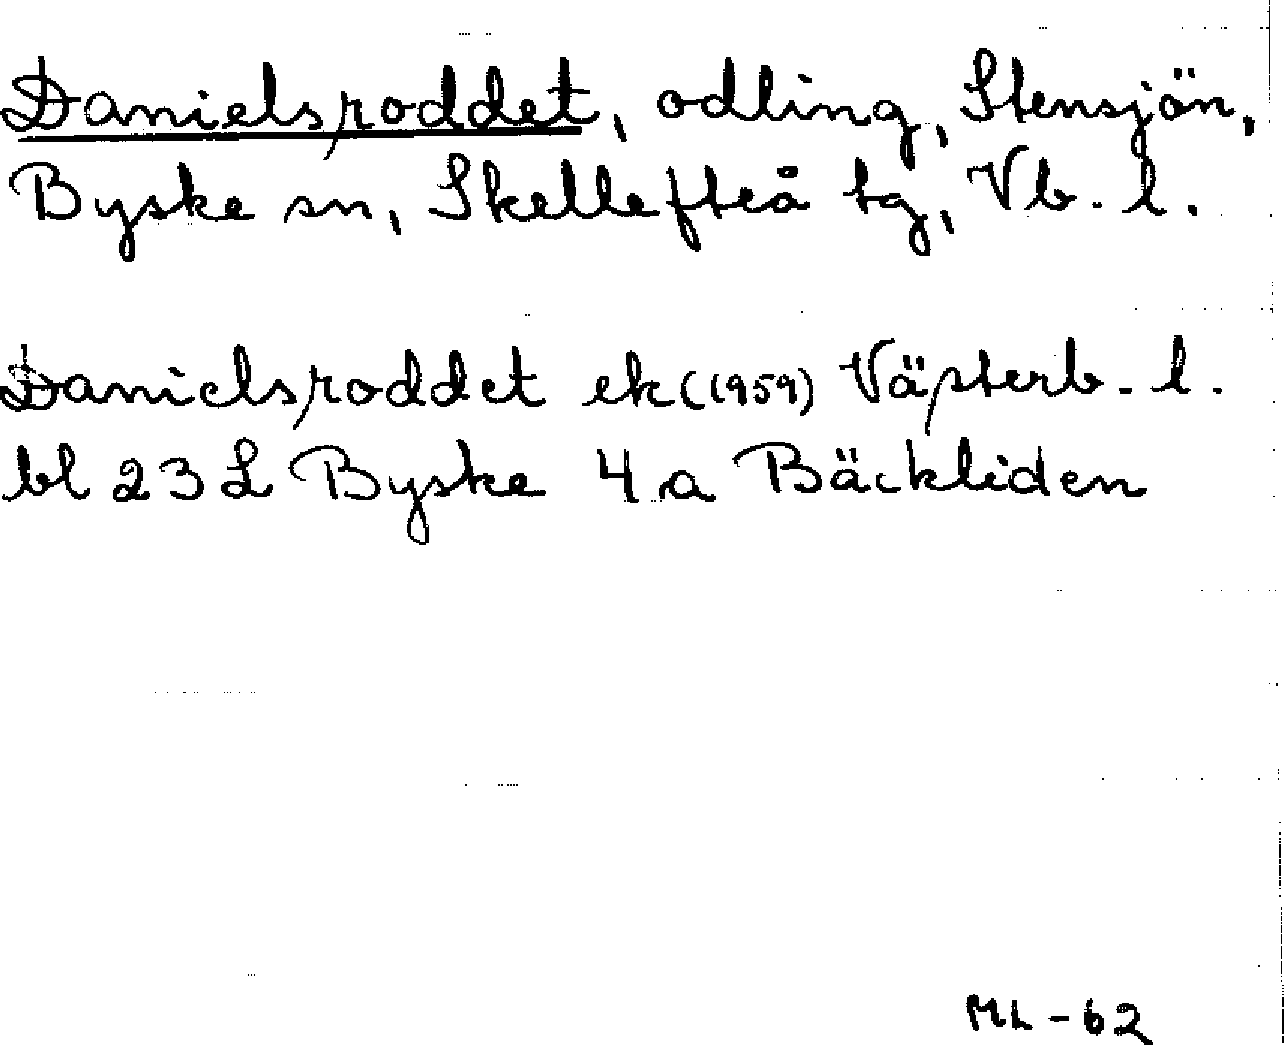 Danielsroddet, odling, Stensjön,
Byske sn, Skellefteå tg, Vb. l.
Danielsroddet ek (1959) Västerb. l.
bl 23 L Byske 4 a Bäckliden
ML - 62